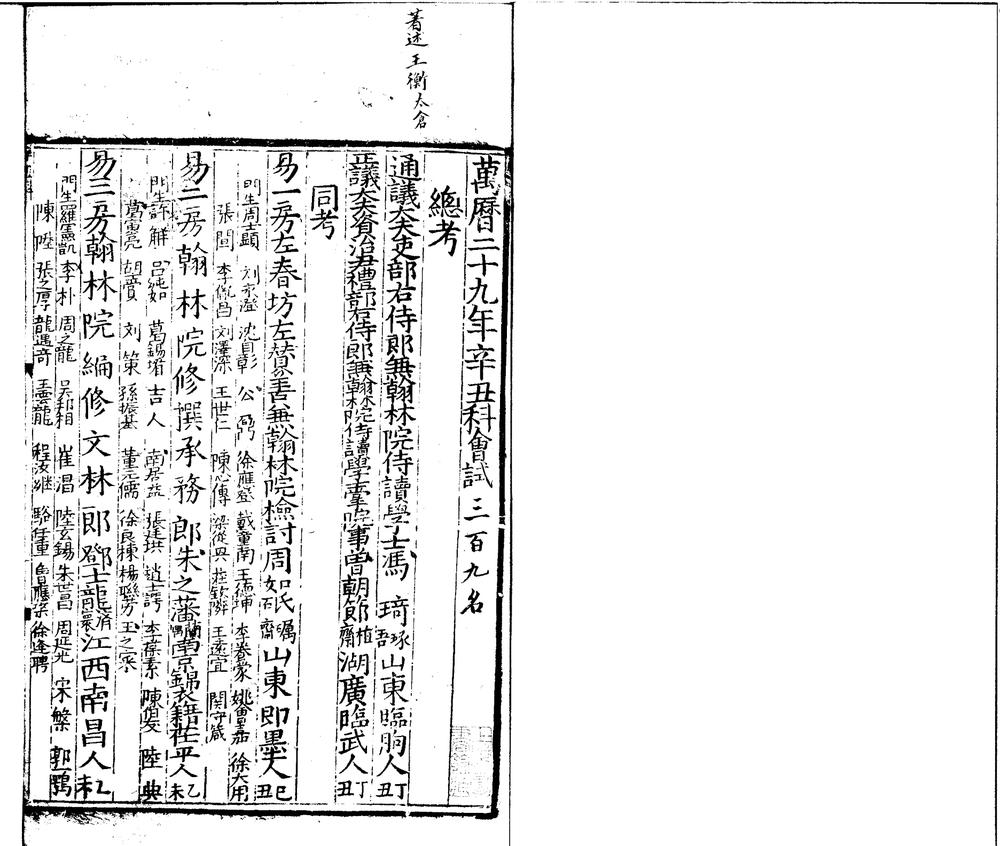 著述王衡太倉
萬曆二十九年辛丑科會試三百九名
總考
通議大夫吏部右侍郎兼翰林院侍讀學士馮琦琢吾山東臨朐人丁丑
正議大夫資治尹禮部右侍郎兼翰林院侍讀學士掌院事曾朝節植齋湖廣臨武人丁丑
同考
易一房左春坊左贊善兼翰林院檢討周如砥礪齋山東即墨人己丑
門生周士顯 刘永澄 沈自彰 公鼐 徐應登 戴章甫 王德坤 李養蒙 姚會嘉 徐大用
張問 李胤昌 刘澤深 王世仁 陳心傳 梁從興 莊欽隣 王遠宜 閔守箴
易二房翰林院修撰承務郎朱之蕃蘭嵎南京錦衣籍茌平人乙未
門生許獬 呂純如 葛錫璠 吉人 南居益 張廷拱 趙士諤 李葆素 陳伯友 陸典
葛寅亮 胡賓 刘策 孫振基 董元儒 徐良棟 楊聯芳 王之寀
易三房翰林院編修文林郎鄧士龍済寰江西南昌人乙未
門生羅憲凱 李朴 周之龍 吳邦相 崔淐 陸玄錫 朱世昌 周延光 宋槃 郭鵬
陳陞 張之厚 龍遇奇 王雲龍 程汝継 駱任重 魯應桒 徐逢聘